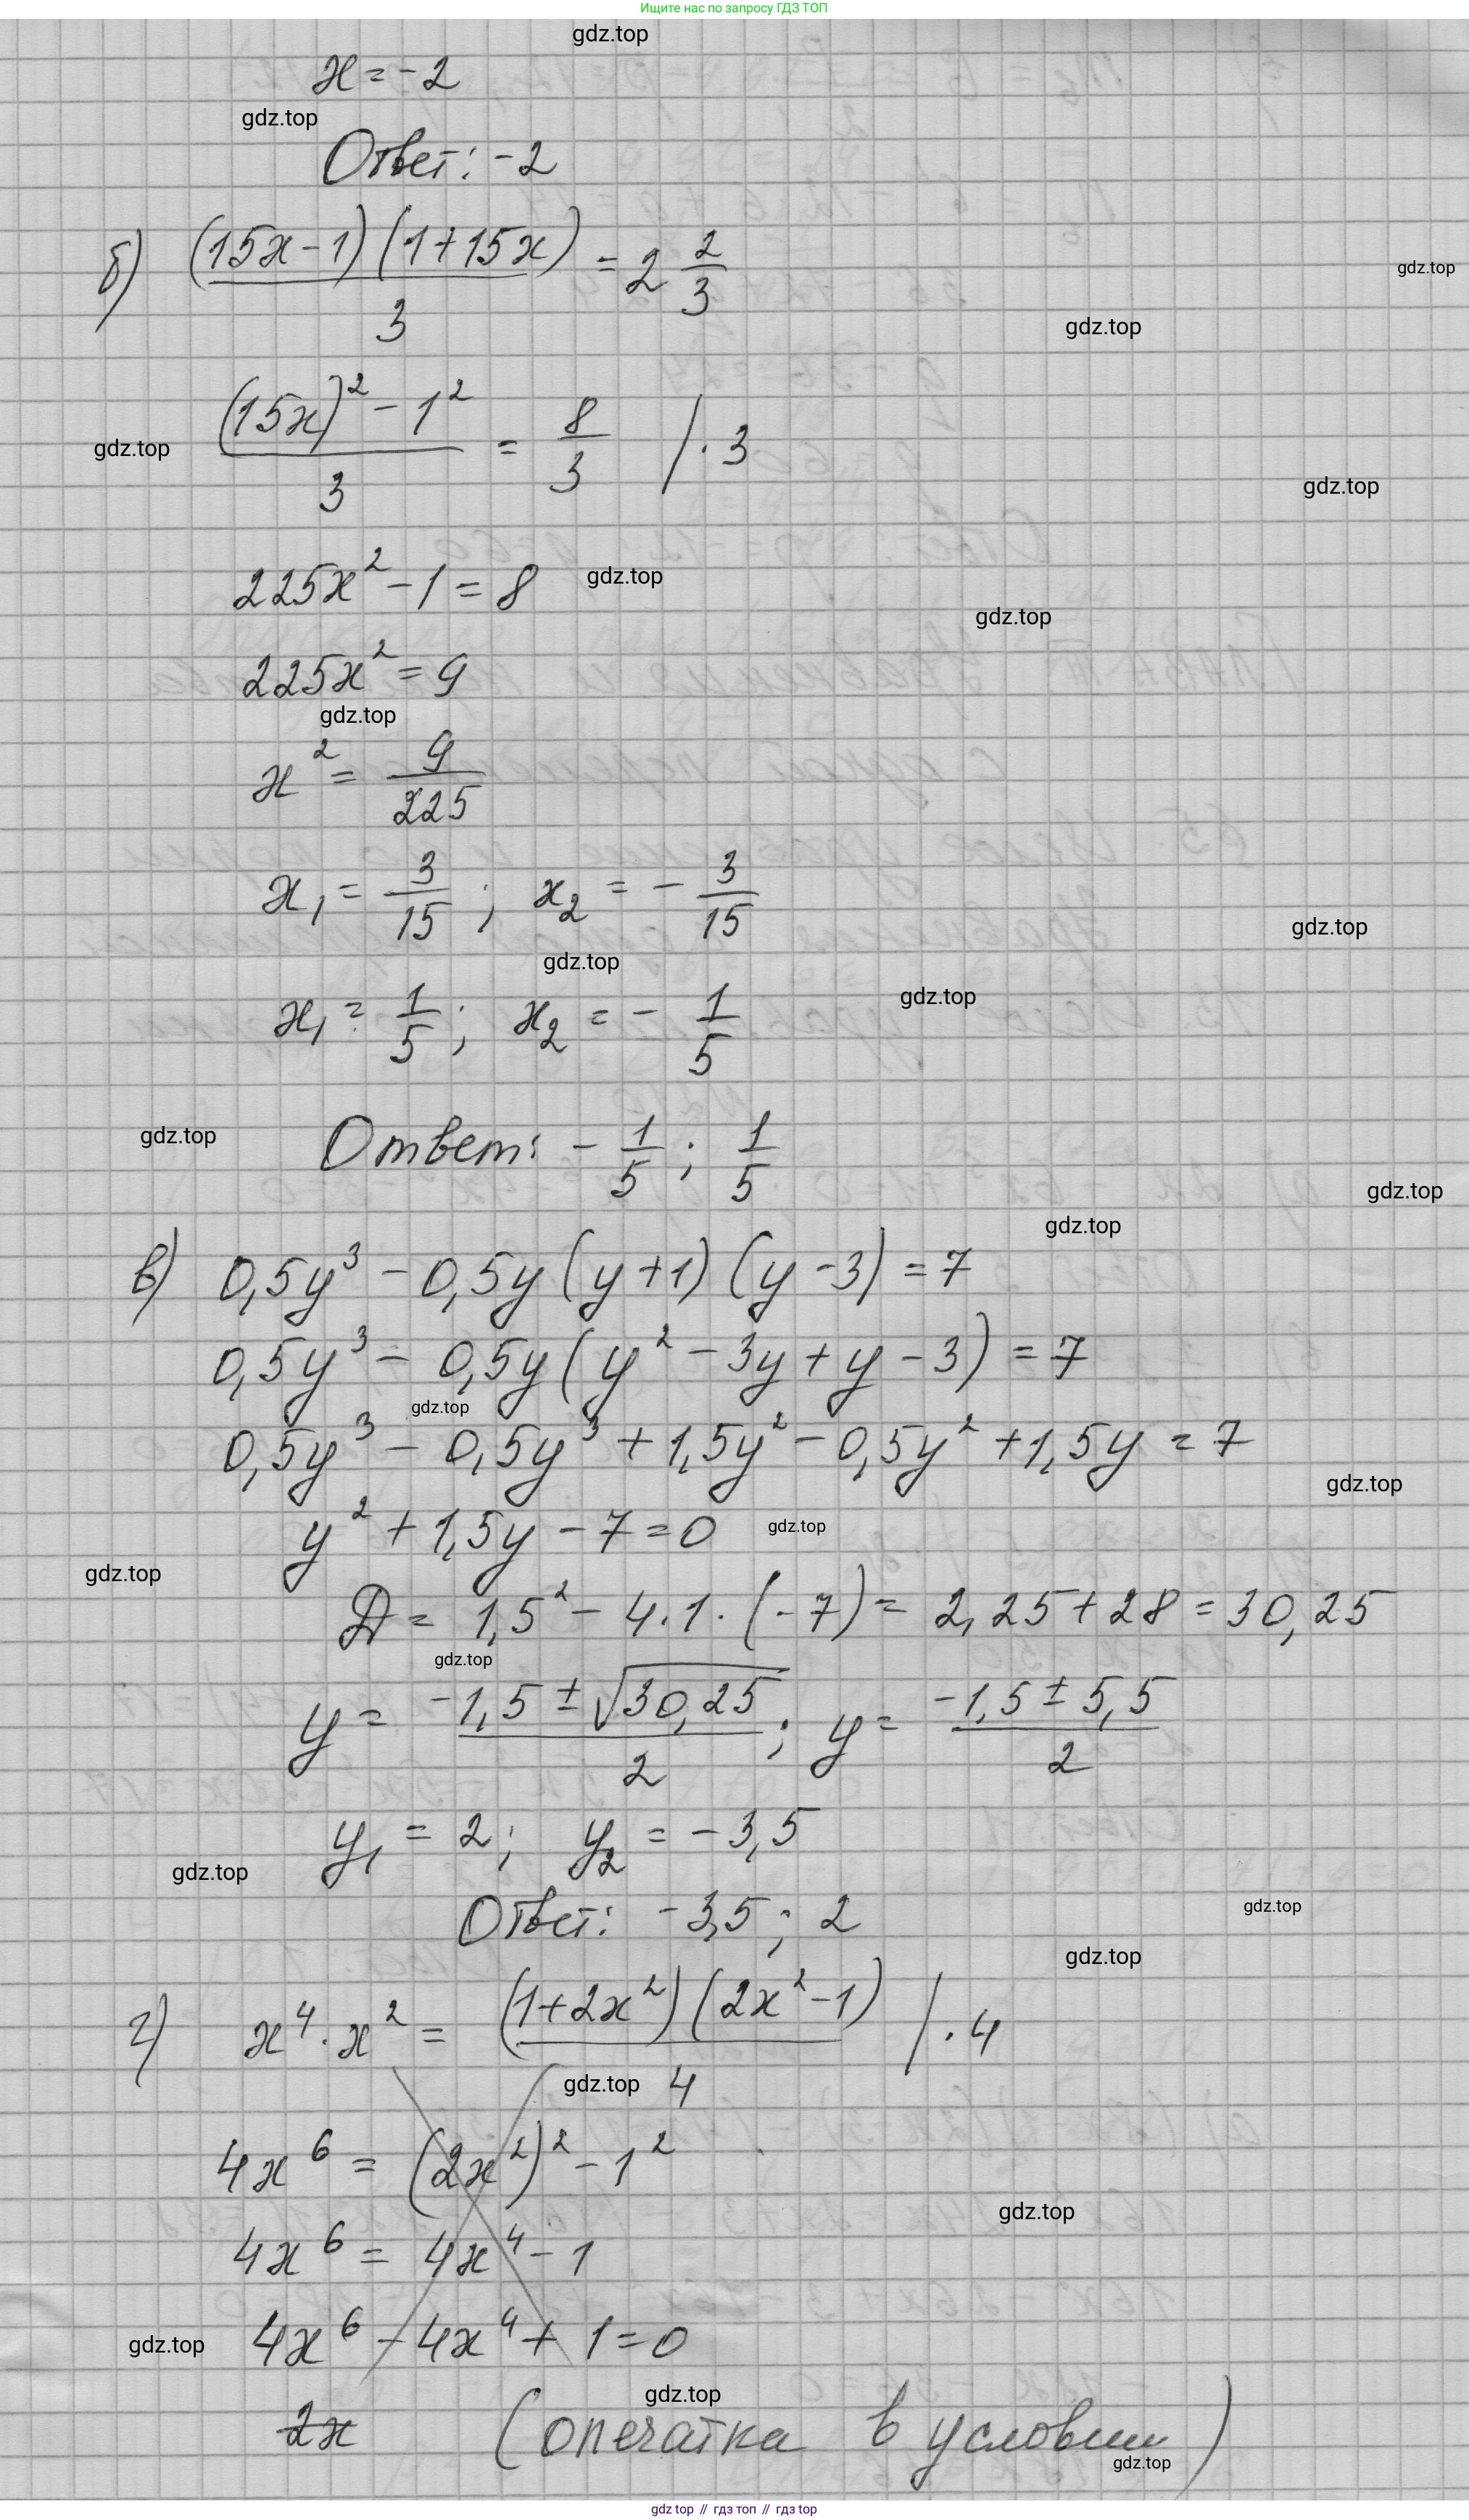 Ищите нас по запросу ГДЗ ТОП
gdz.top
x = -2
gdz.top
Ответ: -2
б) (15x - 1)(1 + 15x) / 3 = 2 2/3
gdz.top
gdz.top
((15x)² - 1²) / 3 = 8/3 / · 3
gdz.top
gdz.top
225x² - 1 = 8
gdz.top
gdz.top
225x² = 9
gdz.top
x² = 9/225
x₁ = 3/15 ; x₂ = - 3/15
gdz.top
gdz.top
gdz.top
x₁ = 1/5 ; x₂ = - 1/5
Ответ: - 1/5 ; 1/5
gdz.top
gdz.top
gdz.top
в) 0,5y³ - 0,5y (y + 1) (y - 3) = 7
0,5y³ - 0,5y (y² - 3y + y - 3) = 7
gdz.top
0,5y³ - 0,5y³ + 1,5y² - 0,5y² + 1,5y = 7
gdz.top
y² + 1,5y - 7 = 0
gdz.top
gdz.top
D = 1,5² - 4 · 1 · (-7) = 2,25 + 28 = 30,25
gdz.top
y = (-1,5 ± √30,25) / 2 ; y = (-1,5 ± 5,5) / 2
y₁ = 2 ; y₂ = -3,5
gdz.top
Ответ: -3,5 ; 2
gdz.top
gdz.top
г) x⁴ · x² = (1 + 2x²)(2x² - 1) / 4 / · 4
gdz.top
4x⁶ = (2x²)² - 1²
gdz.top
4x⁶ = 4x⁴ - 1
4x⁶ - 4x⁴ + 1 = 0
gdz.top
gdz.top
2x (опечатка в условии)
gdz.top
gdz top // гдз топ // гдз top